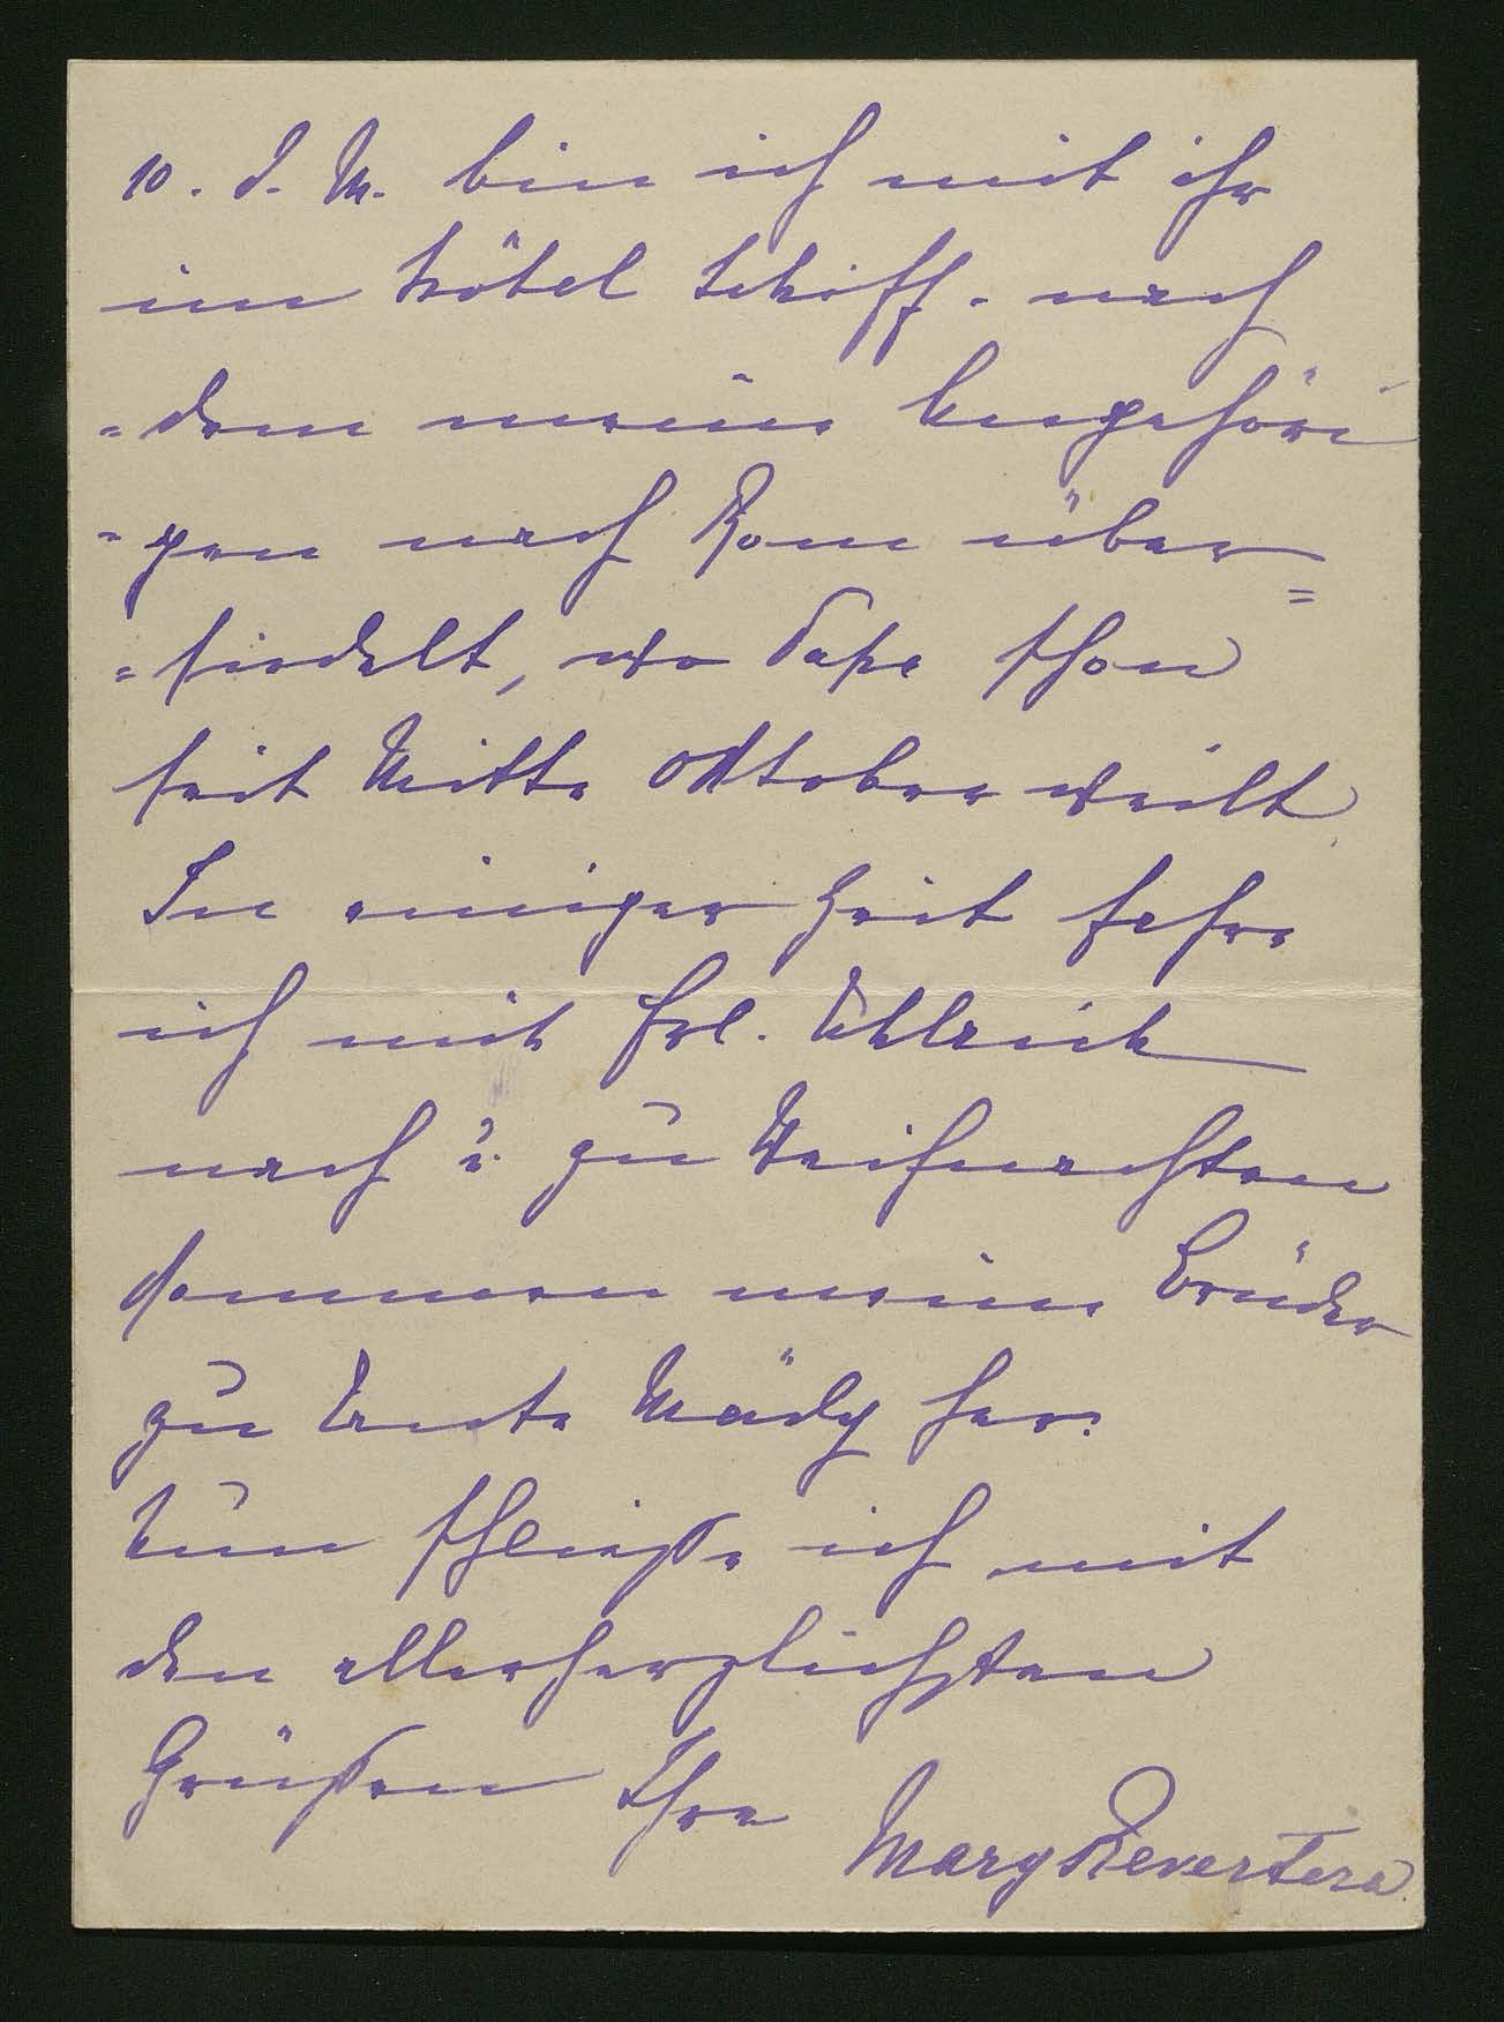 10. d. M. bin ich mit ihr
im Hôtel Schiff. nach
=dem meine Angehöri
-gen nach Rom über=
=siedelt, wo Papa schon
seit Mitte Oktober weilt.
In einiger Zeit fahre
ich mit Frl.
nach 2. zu Weihnachten
kommen meine Brüder
zu Tante Mädy her.
Nun schließe ich mit
den allerherzlichsten
Grüßen Ihre
Mary Revertera